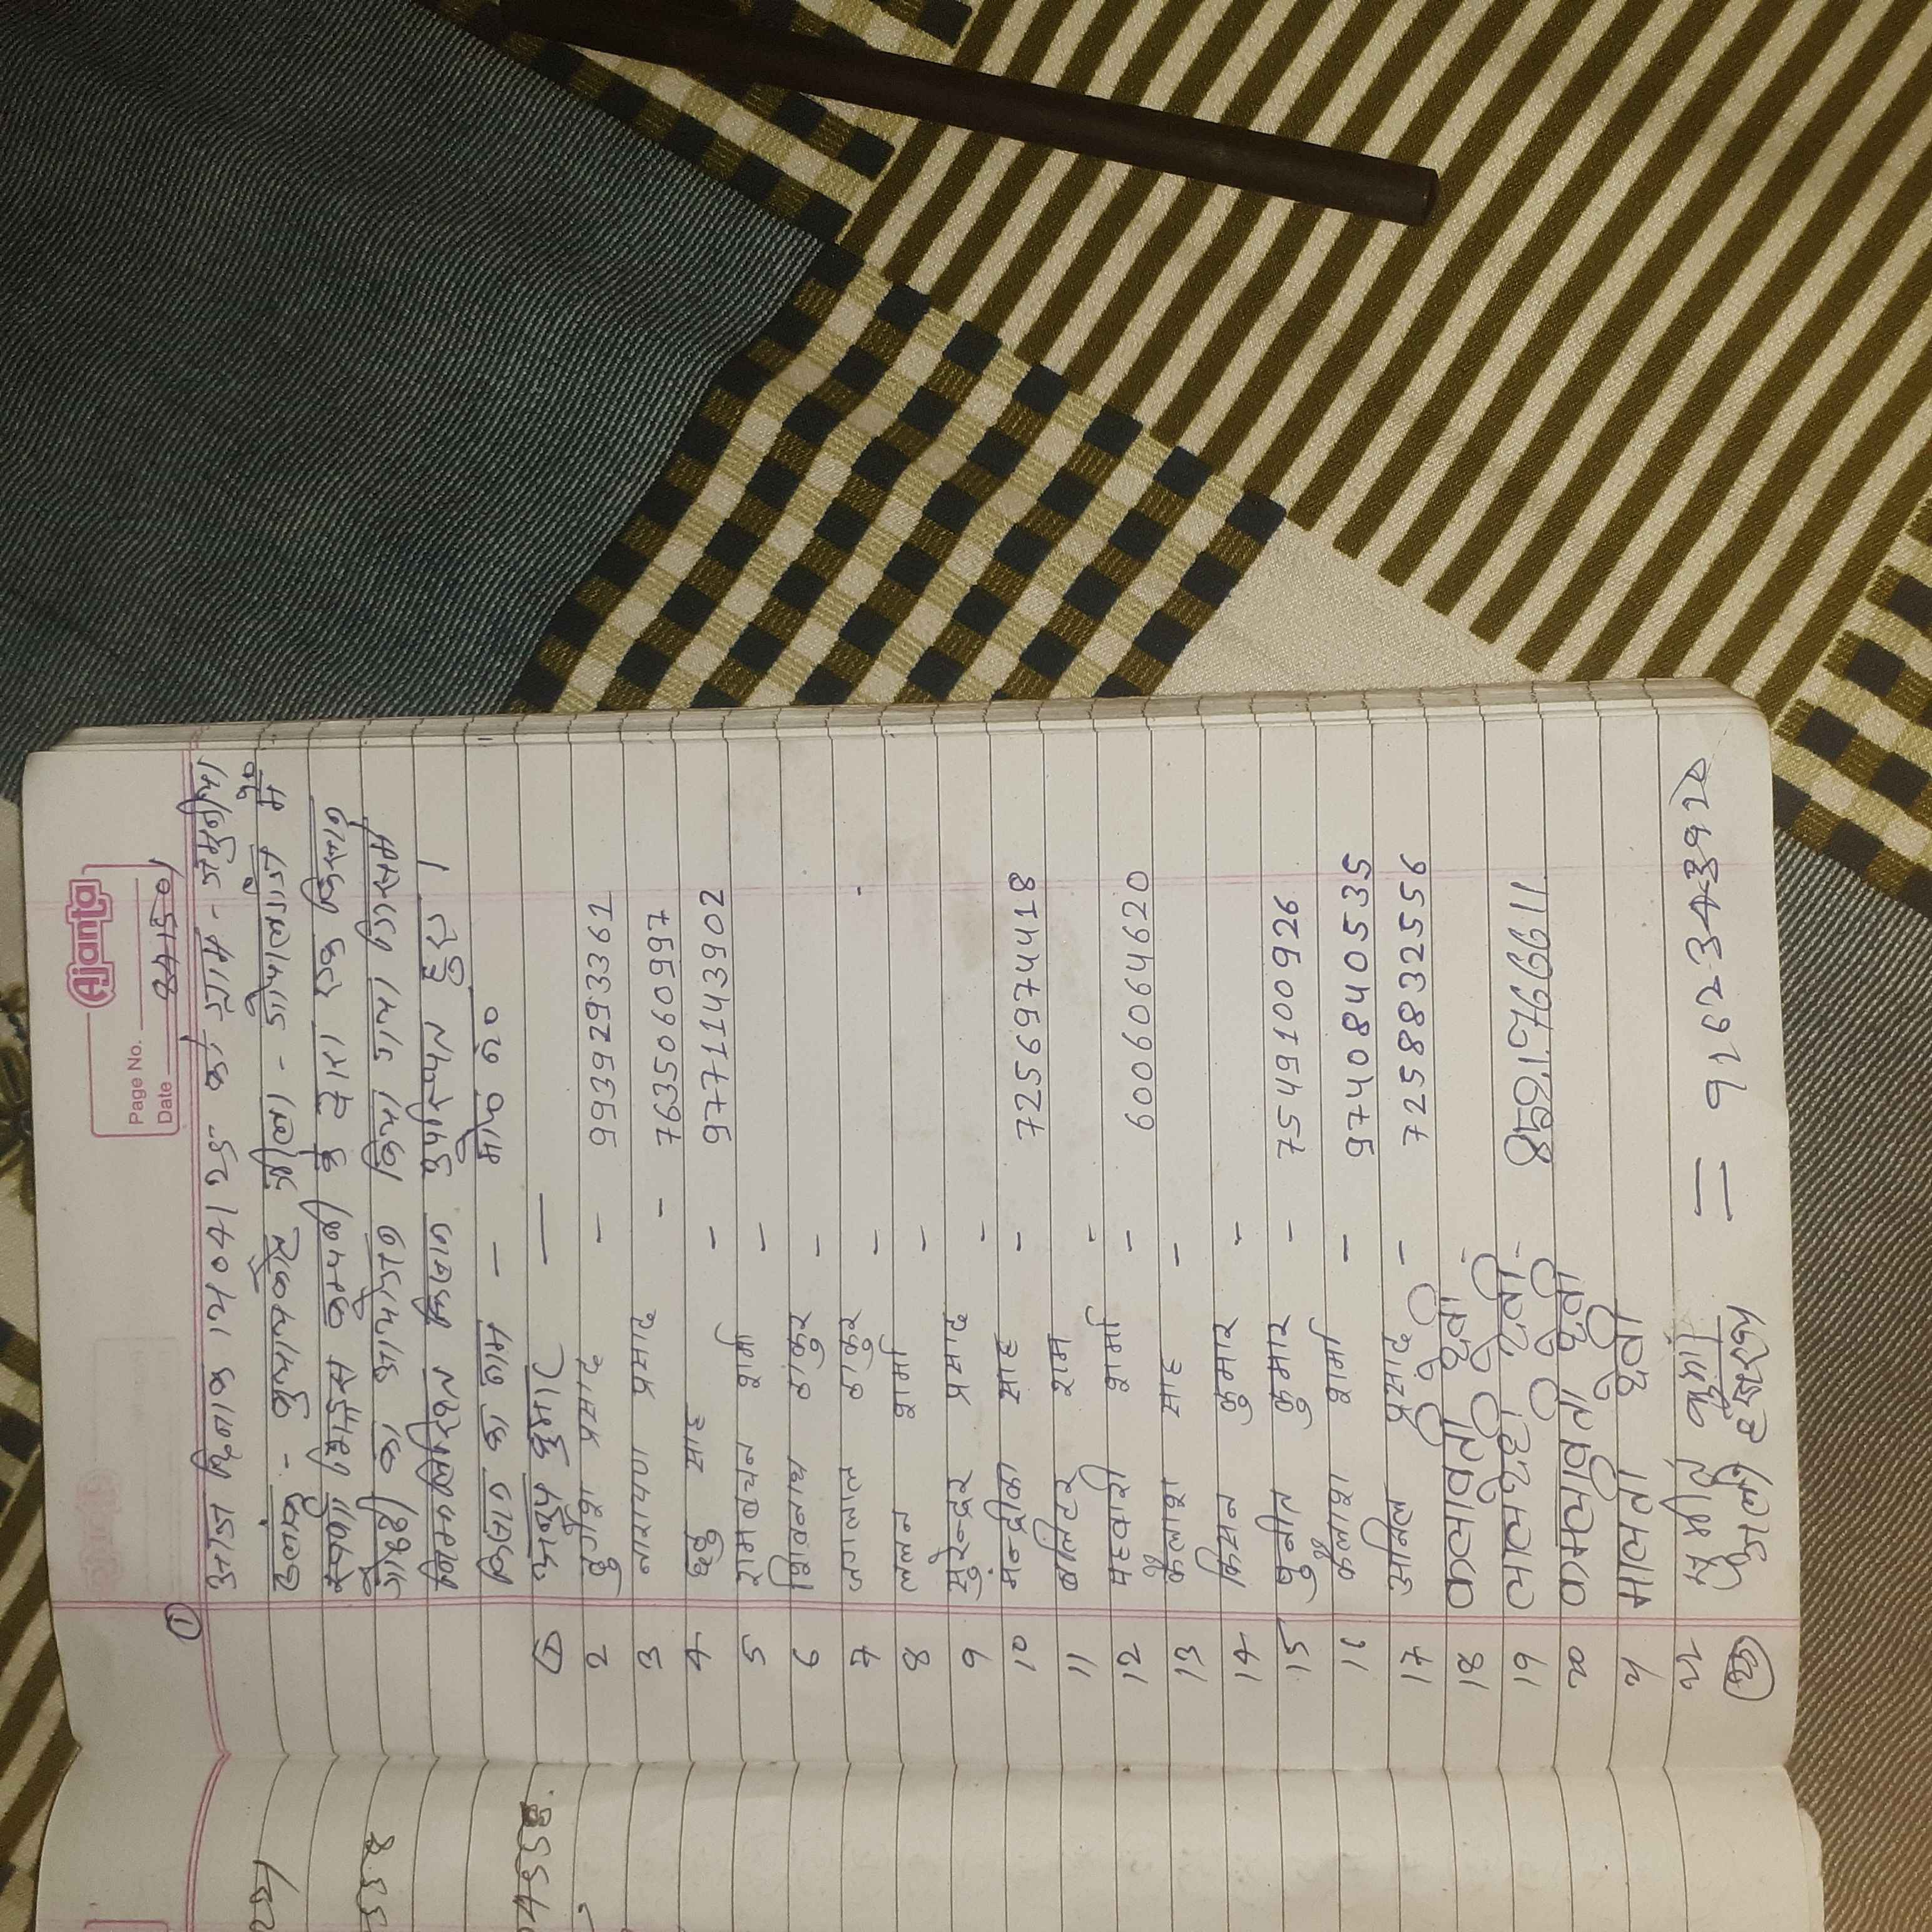 Ajanta
Page No.
Date 84150
①
आज दिनांक 1404125 को ग्राम - जमुनीया
ब्लाक - कुचायकोट जीला - गोपालगंज में
स्वर्णा सिड्स कम्पनी के द्वारा एक किसान
गोष्ठी का आयोजन किया गया जिसमे
निम्नलिखित किसान उपस्थित हुए।
किसान का नाम - मो० न०
① अनुप कुमार —
2 दुर्गेश प्रसाद - 9939293361
3 नारायण प्रसाद - 7635060997
4 छठु साह - 9771143902
5 रामबचन शर्मा -
6 शिवनाथ ठाकुर -
7 जगलाल ठाकुर -
8 ललन शर्मा -
9 सुरेन्द्रर प्रसाद -
10 मन्द्रीका साह - 7256974418
11 बलिटर राम -
12 पहवारी शर्मा - 6006064620
13 कैलाश साह -
14 किसन कुमार -
15 पुनीत कुमार - 7549100926
16 कैलाश शर्मा - 9740840535
17 अनिल प्रसाद - 7258832556
18 कलावती देवी
19 लालपरी देवी
20 कमलावती देवी
21 मालती देवी
22 = 9162343920